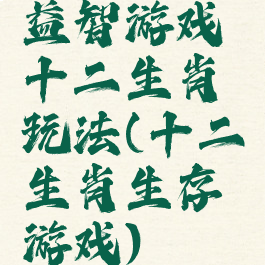 益智游戏
十二生肖
玩法(十二
生肖生存
游戏)